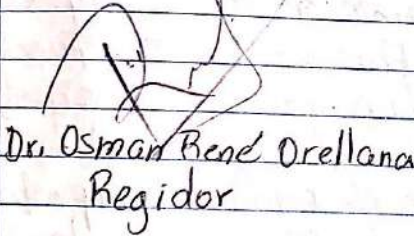 Dr. Osman René Orellana
Regidor